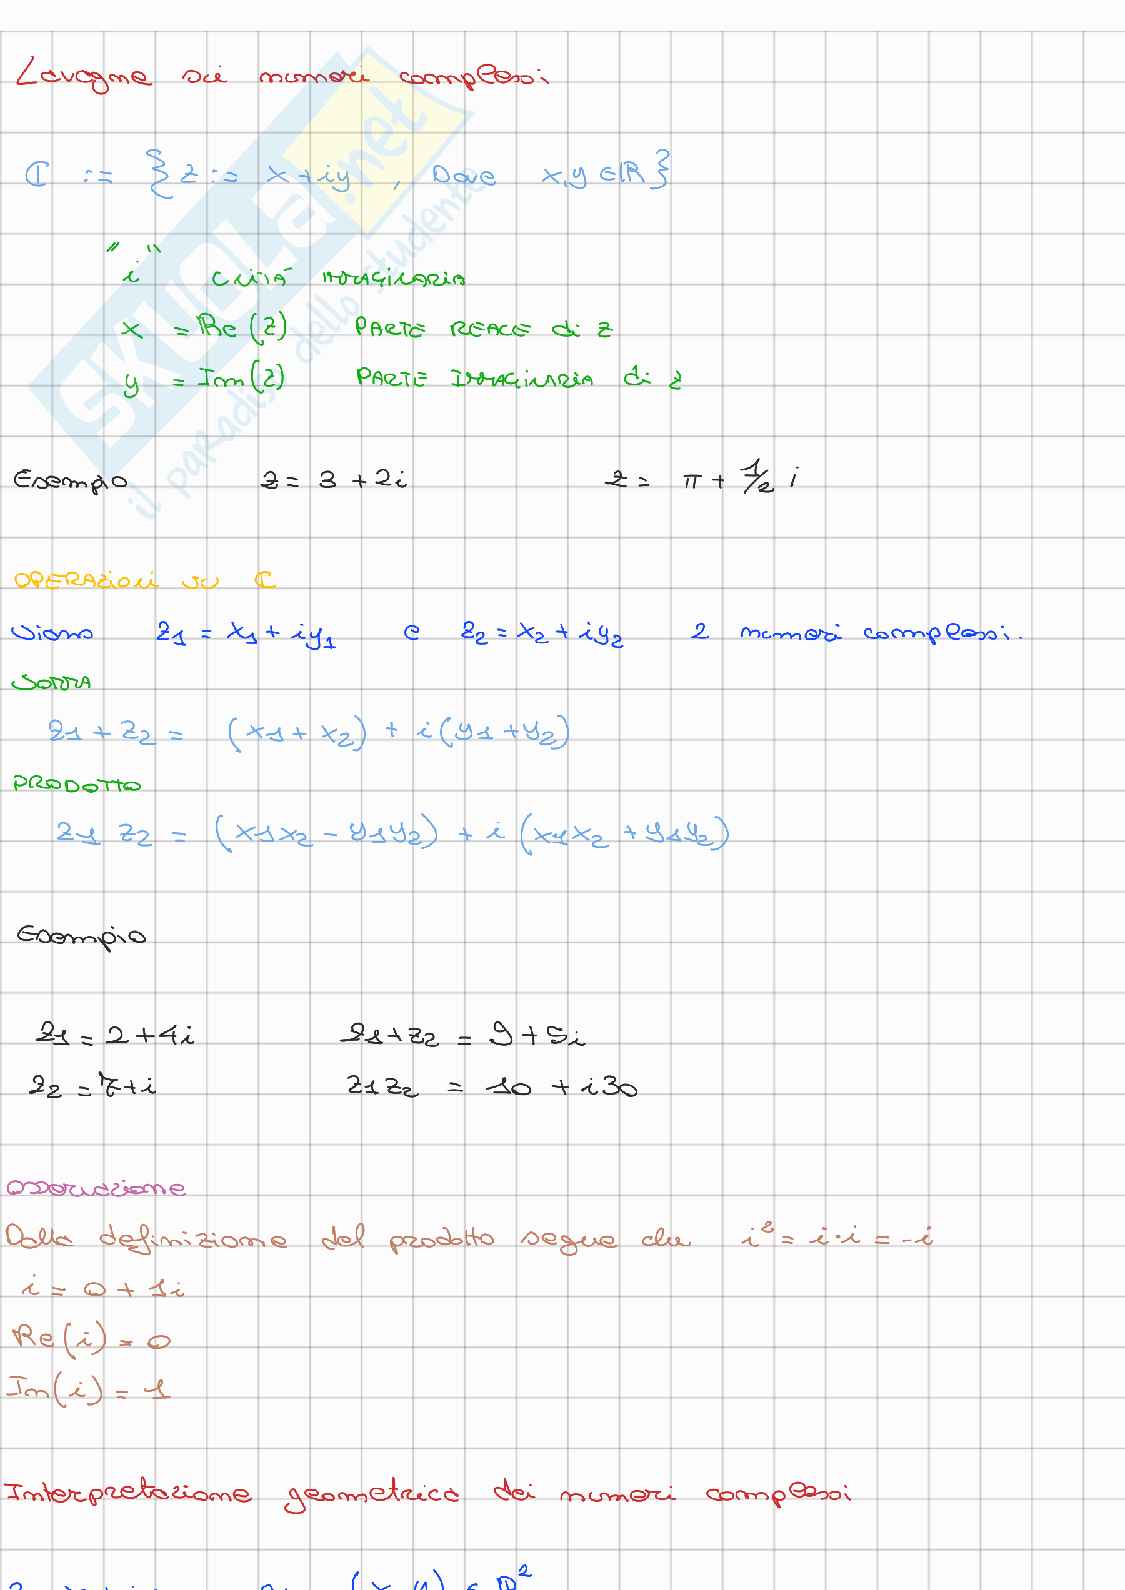 Lavagne sui numeri complessi
ℂ := { z := x+iy , Dove x,y ∈ ℝ }
"i" UNITÀ IMMAGINARIA
x = Re(z) PARTE REALE di z
y = Im(z) PARTE IMMAGINARIA di z
Esempio z = 3 + 2i z = π + 1/2 i
OPERAZIONI SU ℂ
Siano z1 = x1 + iy1 e z2 = x2 + iy2 2 numeri complessi.
SOMMA
z1 + z2 = (x1 + x2) + i(y1 + y2)
PRODOTTO
z1 z2 = (x1x2 - y1y2) + i (x1x2 + y1y2)
Esempio
z1 = 2 + 4i z1+z2 = 9 + 5i
z2 = 7+i z1z2 = 10 + i30
Osservazione
Dalla definizione del prodotto segue che i² = i·i = -i
i = 0 + 1i
Re(i) = 0
Im(i) = 1
Interpretazione geometrica dei numeri complessi
(x,y) ∈ ℝ²
SKUOLA.net
il paradiso dello studente